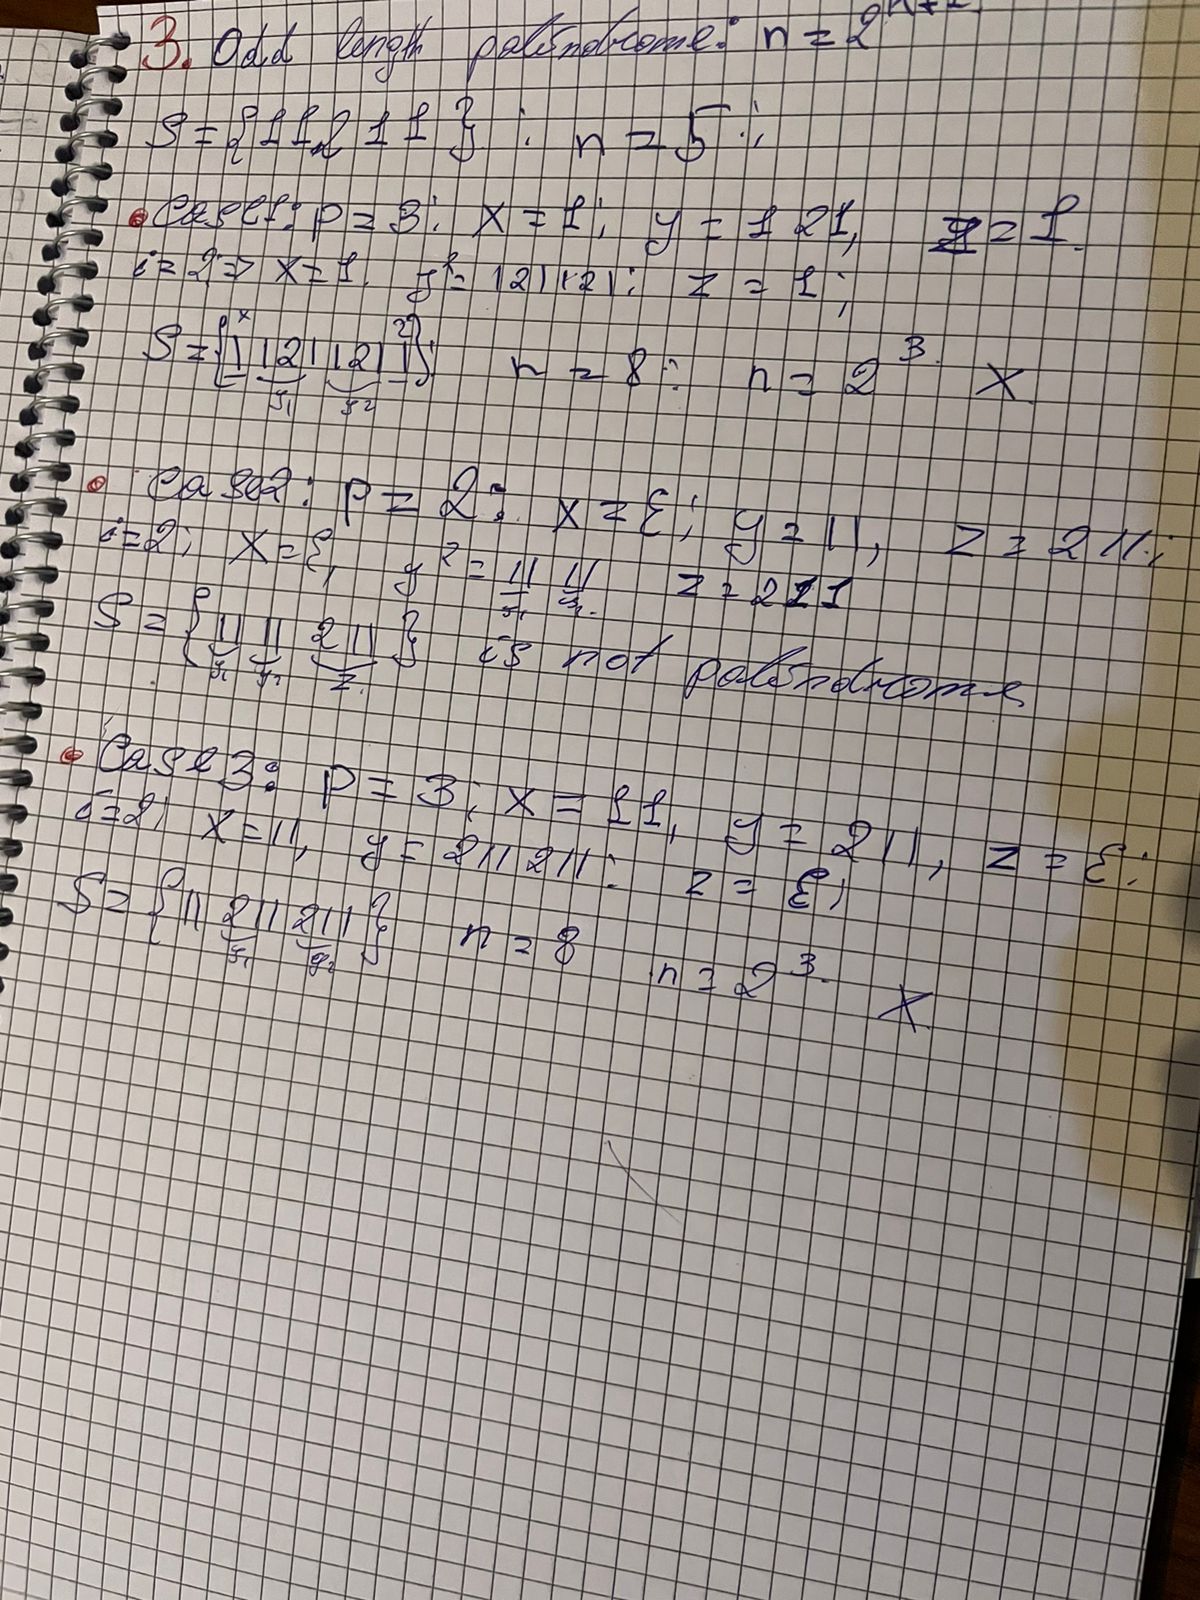 3. Odd length palindrome: n = 2
S = {11211}; n = 5;
Case1: p = 3; x = 1; y = 121, z = 1.
i=2 => x = 1. y² = 121121; z = 1;
S = {1 121 121 1}; n = 8; n = 2³. X
x z
y₁ y₂
Case2: p = 2; x = ε; y = 11, z = 211;
i=2; x = ε, y² = 11 11 z = 211
y₁ y₂.
S = {11 11 211} is not palindrome
y₁ y₂ z.
Case3: p = 3; x = 11, y = 211, z = ε;
i=2; x = 11, y = 211211; z = ε;
S = {11 211 211} n = 8 n = 2³. X
y₁ y₂